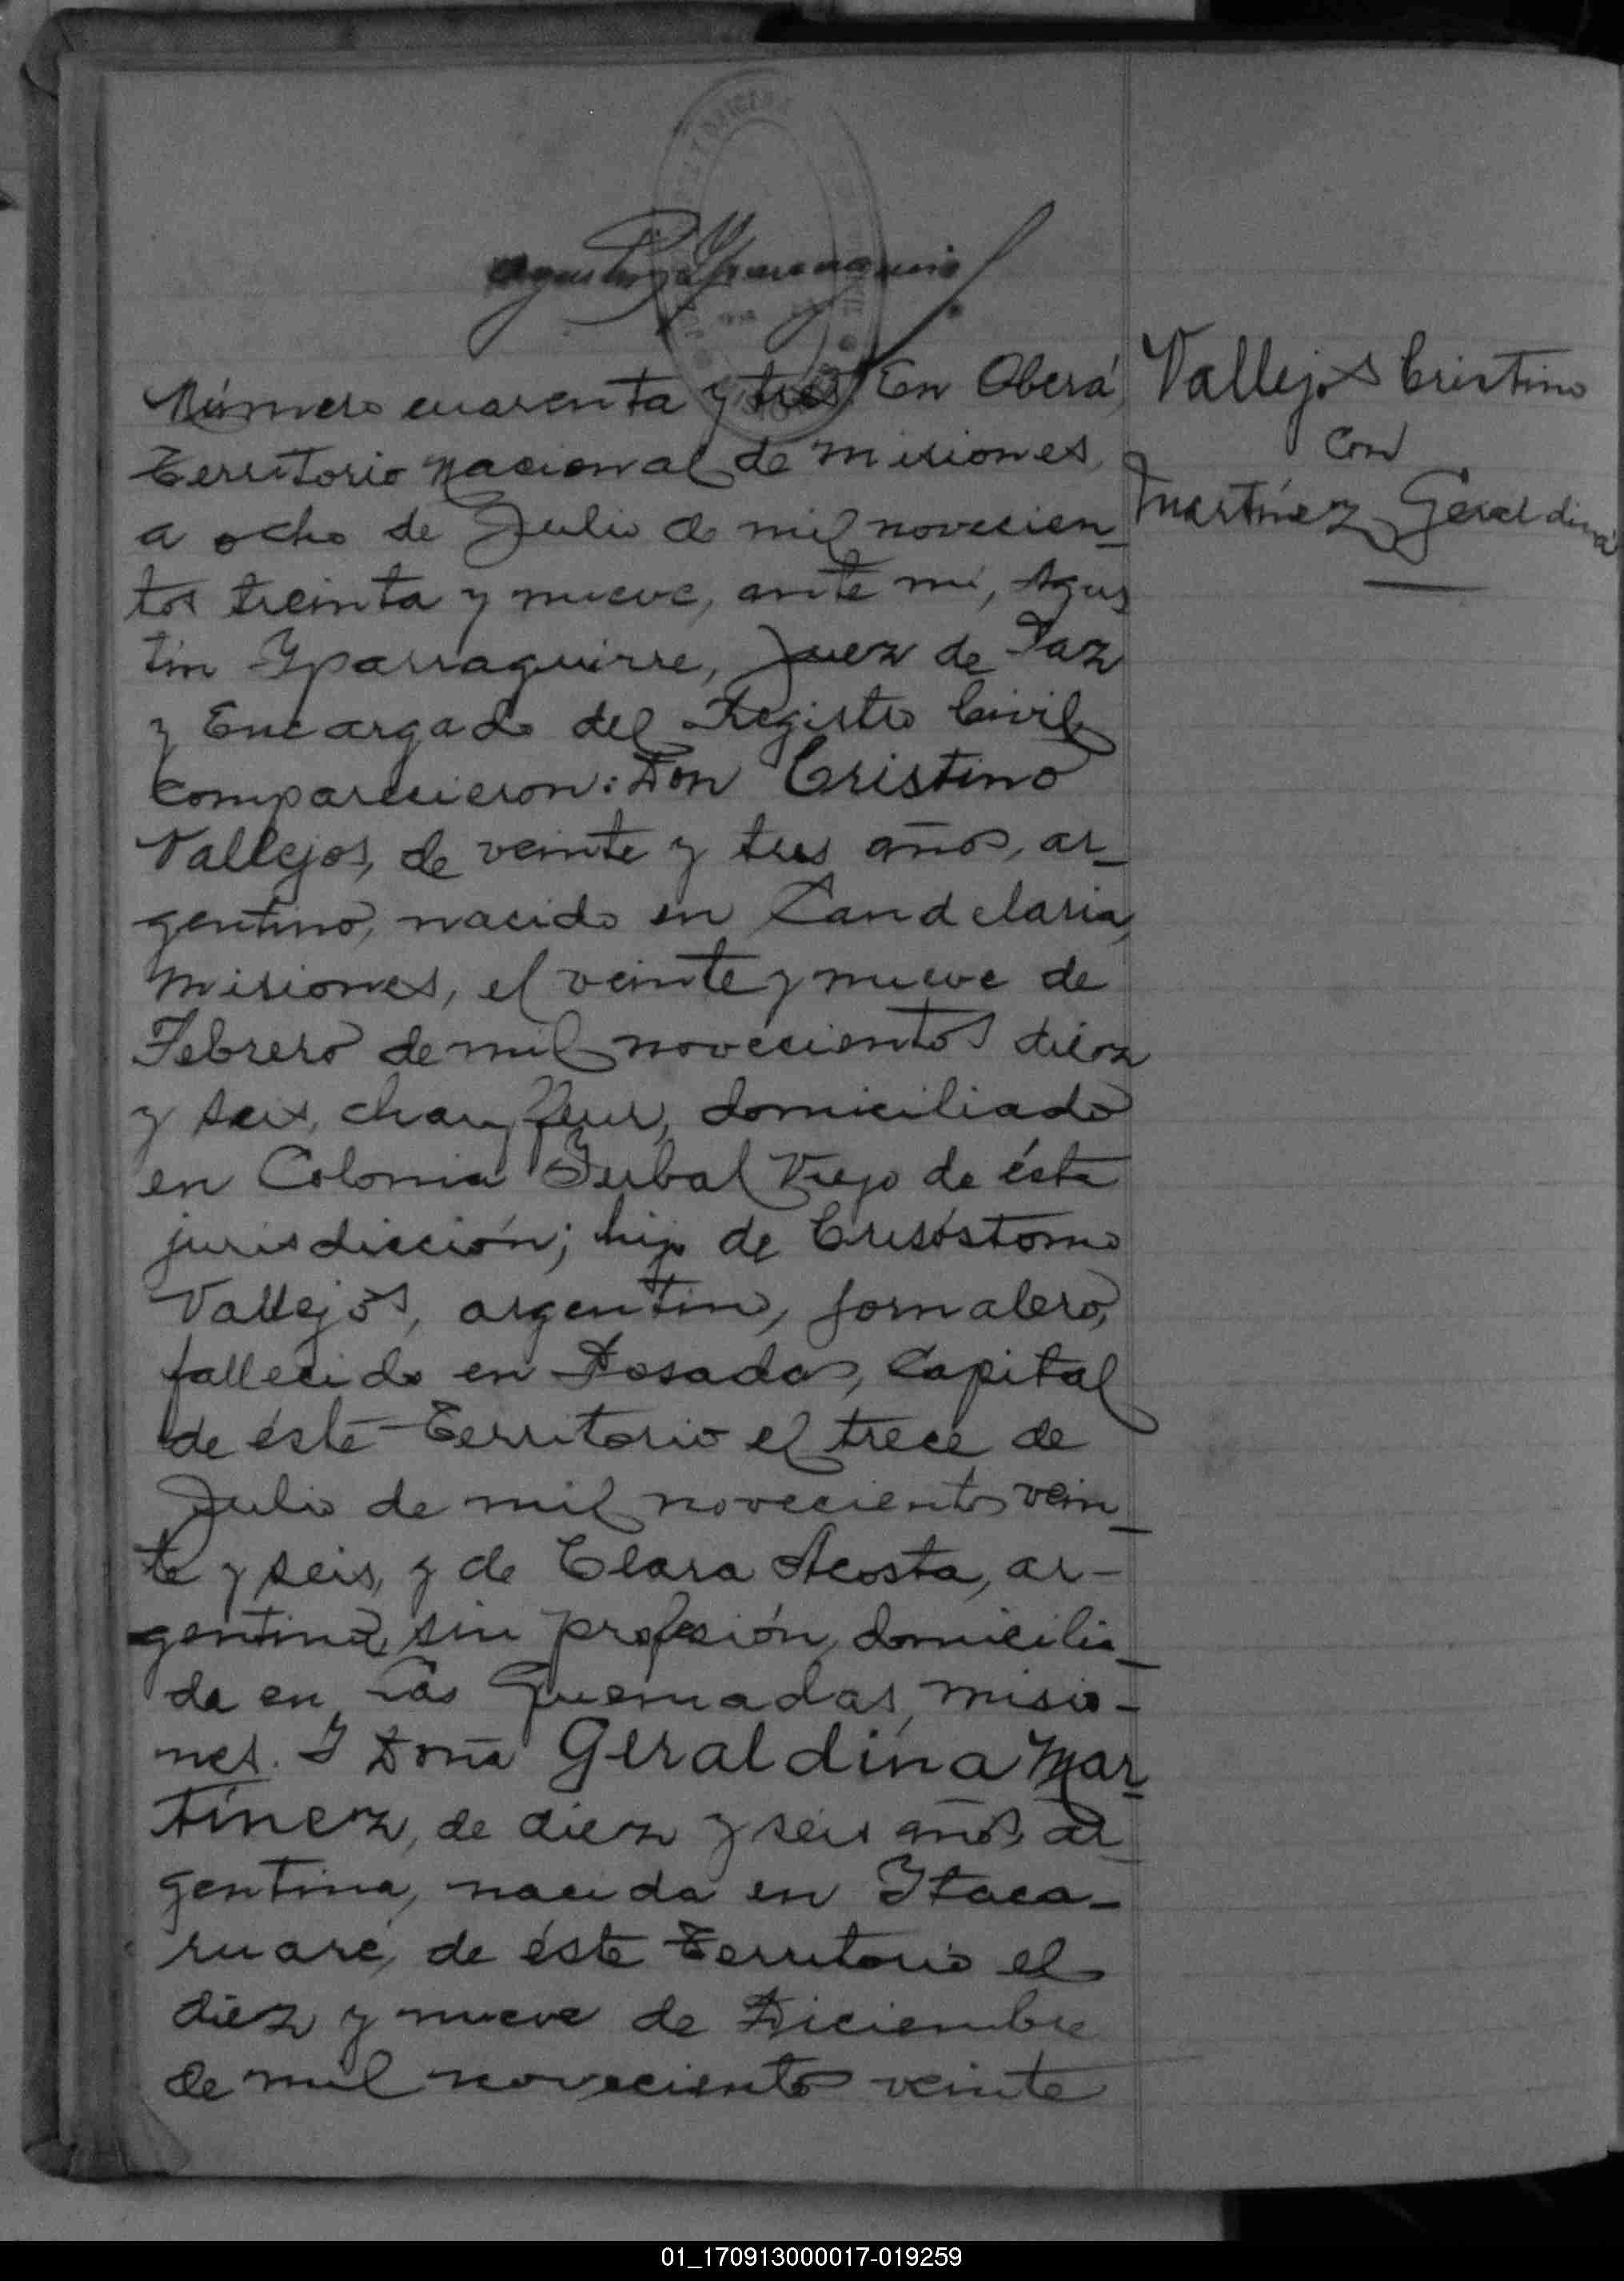 Número cuarenta y tres En Oberá,
Territorio Nacional de Misiones,
a ocho de Julio de mil novecien_
tos treinta y nueve, ante mí, Agus_
tin Yparraguirre, Juez de Paz
y Encargado del Registro Civil
comparecieron: Don Cristino
Vallejos, de veinte y tres años, ar_
gentino, nacido en Candelaria,
Misiones, el veinte y nueve de
Febrero de mil novecientos diez
y seis, chauffeur, domiciliado
en Colonia Yerbal Viejo de ésta
jurisdicción; hijo de Crisóstomo
Vallejos, argentino, jornalero,
fallecido en Posadas, Capital
de éste Territorio el trece de
Julio de mil novecientos vein_
te y seis, y de Clara Acosta, ar-
gentina, sin profesión, domicilia_
da en Las Quemadas, Misio-
nes. Y Doña Geraldina Mar_
tínez, de diez y seis años, ar_
gentina, nacida en Itaca-
ruaré, de éste Territorio el
diez y nueve de Diciembre
de mil novecientos veinte
Vallejos Cristino
con
Martínez Geraldina
01_170913000017-019259